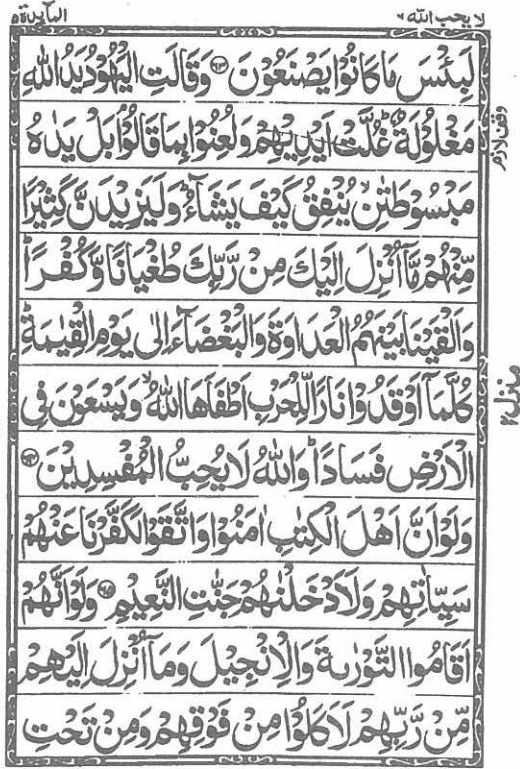 لا يحب الله ٦
المآئدة ٥
لَبِئْسَ مَا كَانُوْا يَصْنَعُوْنَ ﴿٦٣﴾ وَقَالَتِ الْيَهُوْدُ يَدُ اللّٰهِ
مَغْلُوْلَةٌ ؕ غُلَّتْ اَيْدِيْهِمْ وَلُعِنُوْا بِمَا قَالُوْا ۘ بَلْ يَدٰهُ
مَبْسُوْطَتٰنِ ۙ يُنْفِقُ كَيْفَ يَشَآءُ ؕ وَلَيَزِيْدَنَّ كَثِيْرًا
مِّنْهُمْ مَّاۤ اُنْزِلَ اِلَيْكَ مِنْ رَّبِّكَ طُغْيَانًا وَّكُفْرًا ؕ
وَاَلْقَيْنَا بَيْنَهُمُ الْعَدَاوَةَ وَالْبَغْضَآءَ اِلٰى يَوْمِ الْقِيٰمَةِ ؕ
كُلَّمَاۤ اَوْقَدُوْا نَارًا لِّلْحَرْبِ اَطْفَاَهَا اللّٰهُ ۙ وَيَسْعَوْنَ فِى
الْاَرْضِ فَسَادًا ؕ وَاللّٰهُ لَا يُحِبُّ الْمُفْسِدِيْنَ ﴿٦٤﴾
وَلَوْ اَنَّ اَهْلَ الْكِتٰبِ اٰمَنُوْا وَاتَّقَوْا لَكَفَّرْنَا عَنْهُمْ
سَيِّاٰتِهِمْ وَلَاَدْخَلْنٰهُمْ جَنّٰتِ النَّعِيْمِ ﴿٦٥﴾ وَلَوْ اَنَّهُمْ
اَقَامُوا التَّوْرٰىةَ وَالْاِنْجِيْلَ وَمَاۤ اُنْزِلَ اِلَيْهِمْ
مِّنْ رَّبِّهِمْ لَاَكَلُوْا مِنْ فَوْقِهِمْ وَمِنْ تَحْتِ
وقف لازم
منزل ٢